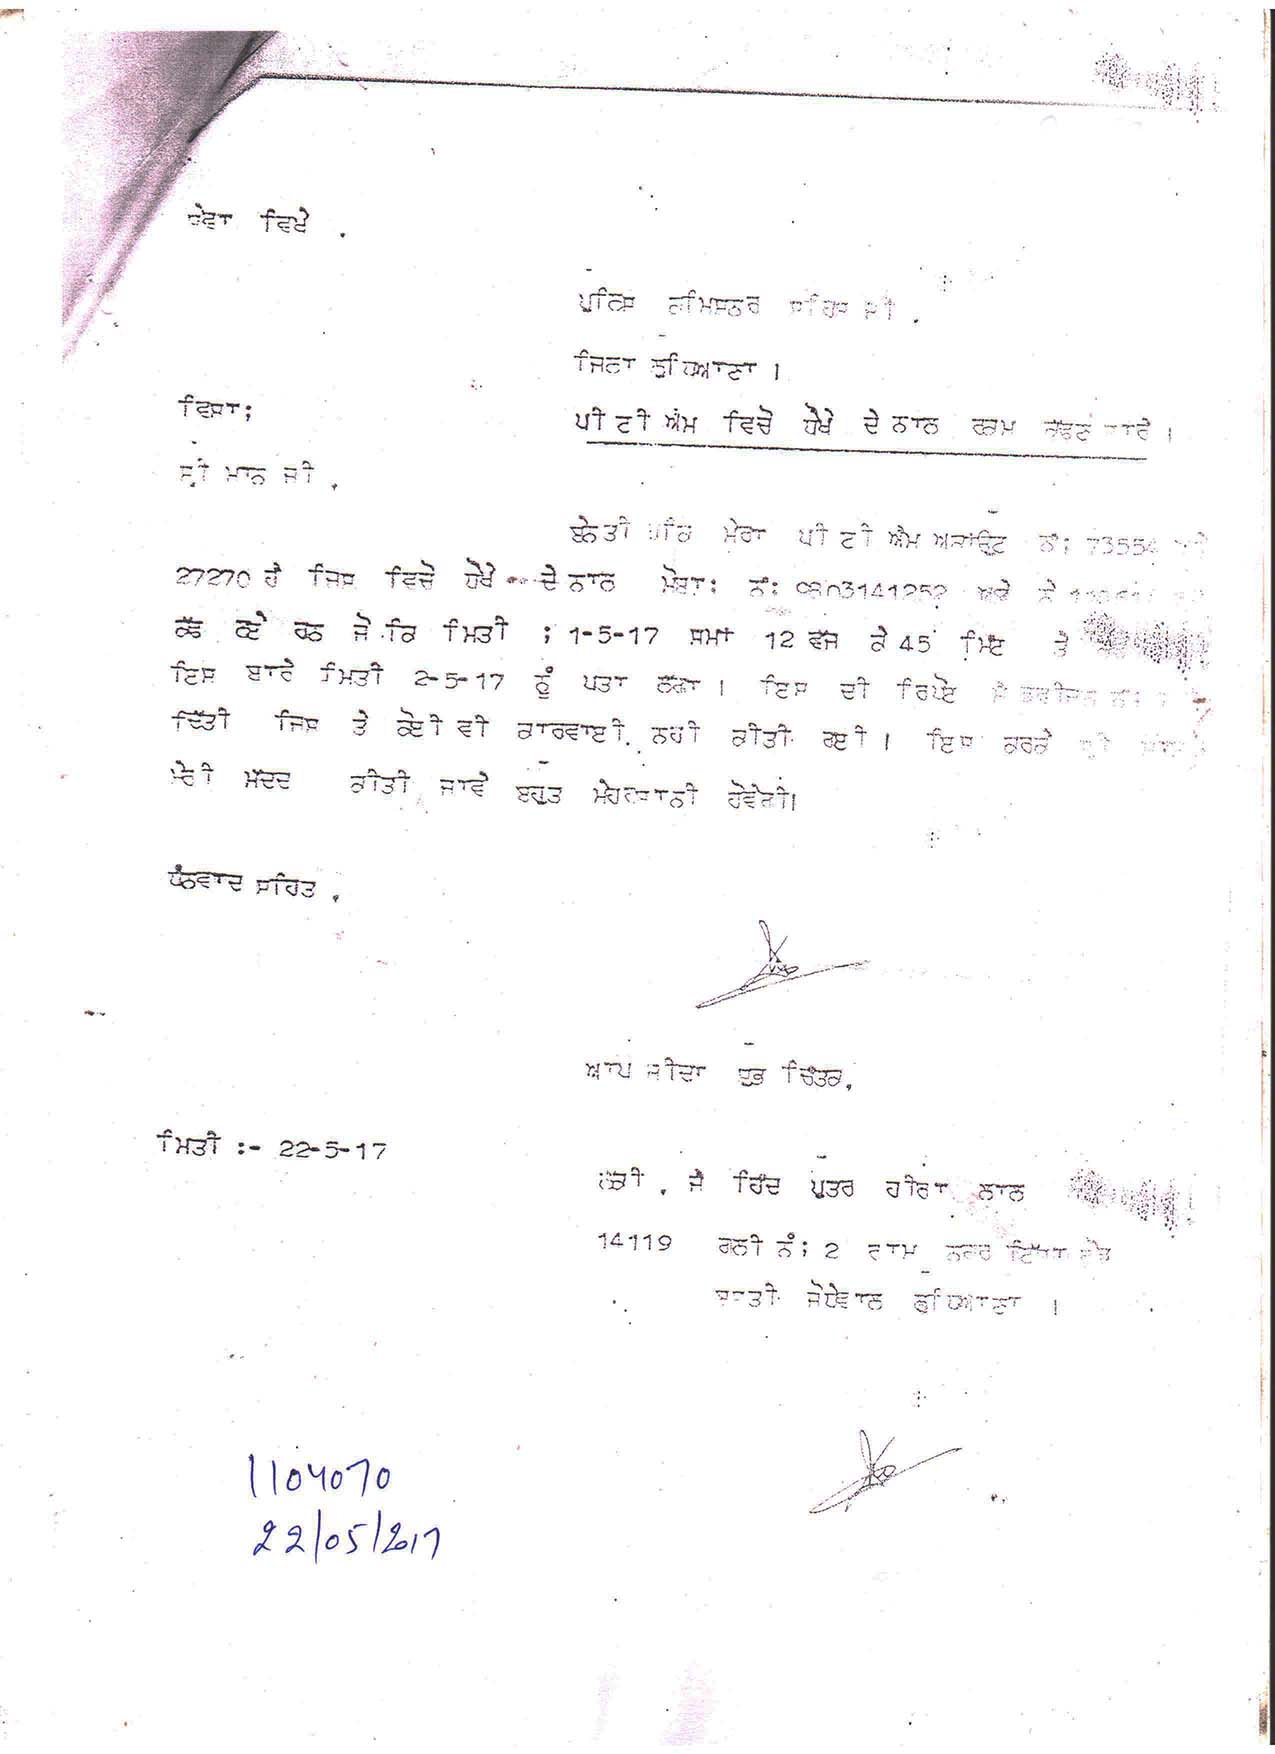 ਸੇਵਾ ਵਿਖੇ .
ਪੁਲਿਸ ਕਮਿਸ਼ਨਰ ਸਾਹਿਬ ਜੀ .
ਜਿਲਾ ਲੁਧਿਆਣਾ ।
ਵਿਸ਼ਾ;
ਪੀ ਟੀ ਐਮ ਵਿਚੋ ਧੋਖੇ ਦੇ ਨਾਲ ਰਕਮ ਕੱਢਣ ਬਾਰੇ ।
ਸ਼੍ਰੀ ਮਾਨ ਜੀ .
ਬੇਨਤੀ ਮੇਰਾ ਪੀ ਟੀ ਐਮ ਅਕਾਂਊਟ ਨੰ; 73554
27270 ਹੈ ਜਿਸ ਵਿਚੋ ਧੋਖੇ ਦੇ ਨਾਲ ਮੋਬਾ: ਨੰ:
ਕੱਢ ਲਏ ਹਨ ਜੋ ਕਿ ਮਿਤੀ ; 1-5-17 ਸਮਾਂ 12 ਵੱਜ ਕੇ 45 ਮਿੰਟ ਤੇ
ਇਸ ਬਾਰੇ ਮਿਤੀ 2-5-17 ਨੂੰ ਪਤਾ ਲੱਗਾ । ਇਸ ਦੀ ਰਿਪੋਟ ਮੈ
ਦਿੱਤੀ ਜਿਸ ਤੇ ਕੋਈ ਵੀ ਕਾਰਵਾਈ. ਨਹੀ ਕੀਤੀ ਗਈ । ਇਸ ਕਰਕੇ
ਮੇਰੀ ਮੱਦਦ ਕੀਤੀ ਜਾਵੇ ਬਹੁਤ ਮੇਹਰਬਾਨੀ ਹੋਵੇਗੀ।
ਧੰਨਵਾਦ ਸਹਿਤ .
ਆਪ ਜੀਦਾ ਸ਼ੁਭ ਚਿੰਤਕ.
ਮਿਤੀ :- 22-5-17
ਲੱਕੀ . ਜੈ ਹਿੰਦ ਪੁਤਰ ਹੀਰਾ ਲਾਲ
14119 ਗਲੀ ਨੰ; 2 ਰਾਮ ਨਗਰ
ਬਸਤੀ ਜੋਧੇਵਾਲ ਲੁਧਿਆਣਾ ।
1104070
22/05/2017